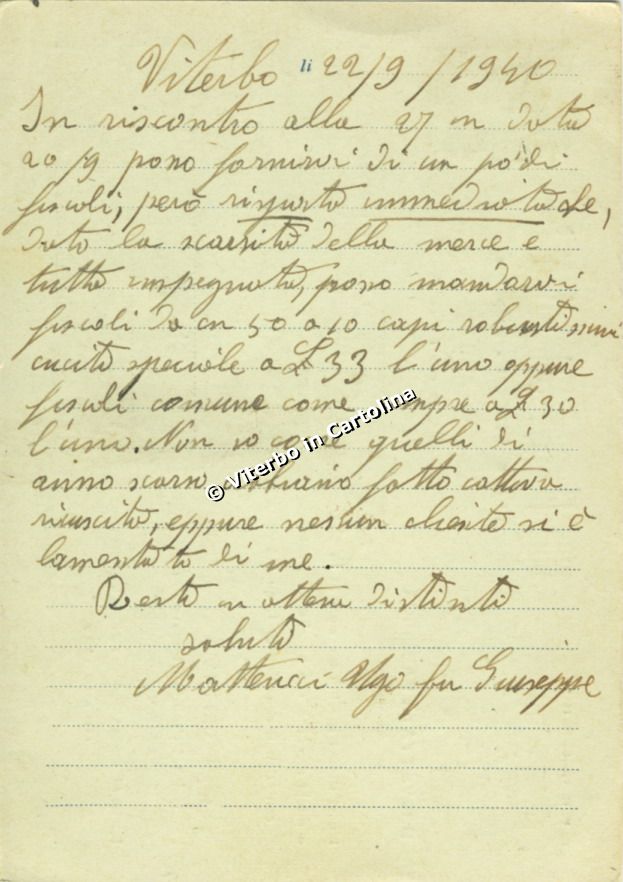 Viterbo li 22/9/1940
In riscontro alla 27 in data
20/9 posso fornirvi di un po' di
fiscoli, però risposta immediata che,
data la scarsità della merce e
tutto impegnato, posso mandarvi
fiscoli da cm 50 a 10 capi robustissimi
cucito speciale a £ 33 l'uno oppure
fiscoli comune come sempre a £ 30
l'uno. Non so come quelli di
anno scorso abbiano fatto cattiva
riuscita, eppure nessun cliente si è
lamentato di me.
Resto in attesa distinti
saluti
Matteucci Ugo fu Giuseppe
© Viterbo in Cartolina